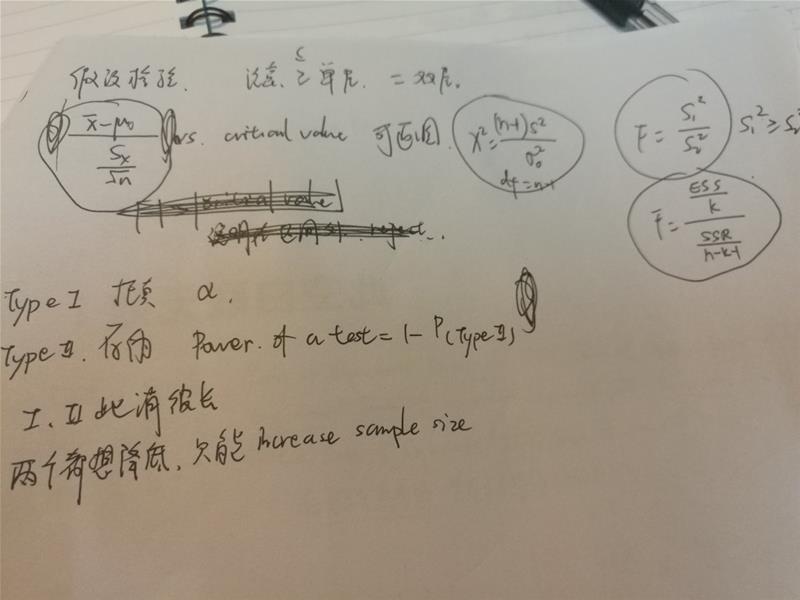 假设检验. 注意 ≤ ≥ 单尾. = 双尾.
x̄-μ₀ / (Sx/√n) vs. critical value 可画图. X² = (n-1)S² / σ₀² df = n-1
F = S₁² / S₂² S₁² ≥ S₂²
F = (ESS/k) / (SSR/(n-k-1))
Type I 拒真 α.
Type II. 存伪 Power. of a test = 1 - P(Type II)
I、II 此消彼长
两个都想降低, 只能 increase sample size